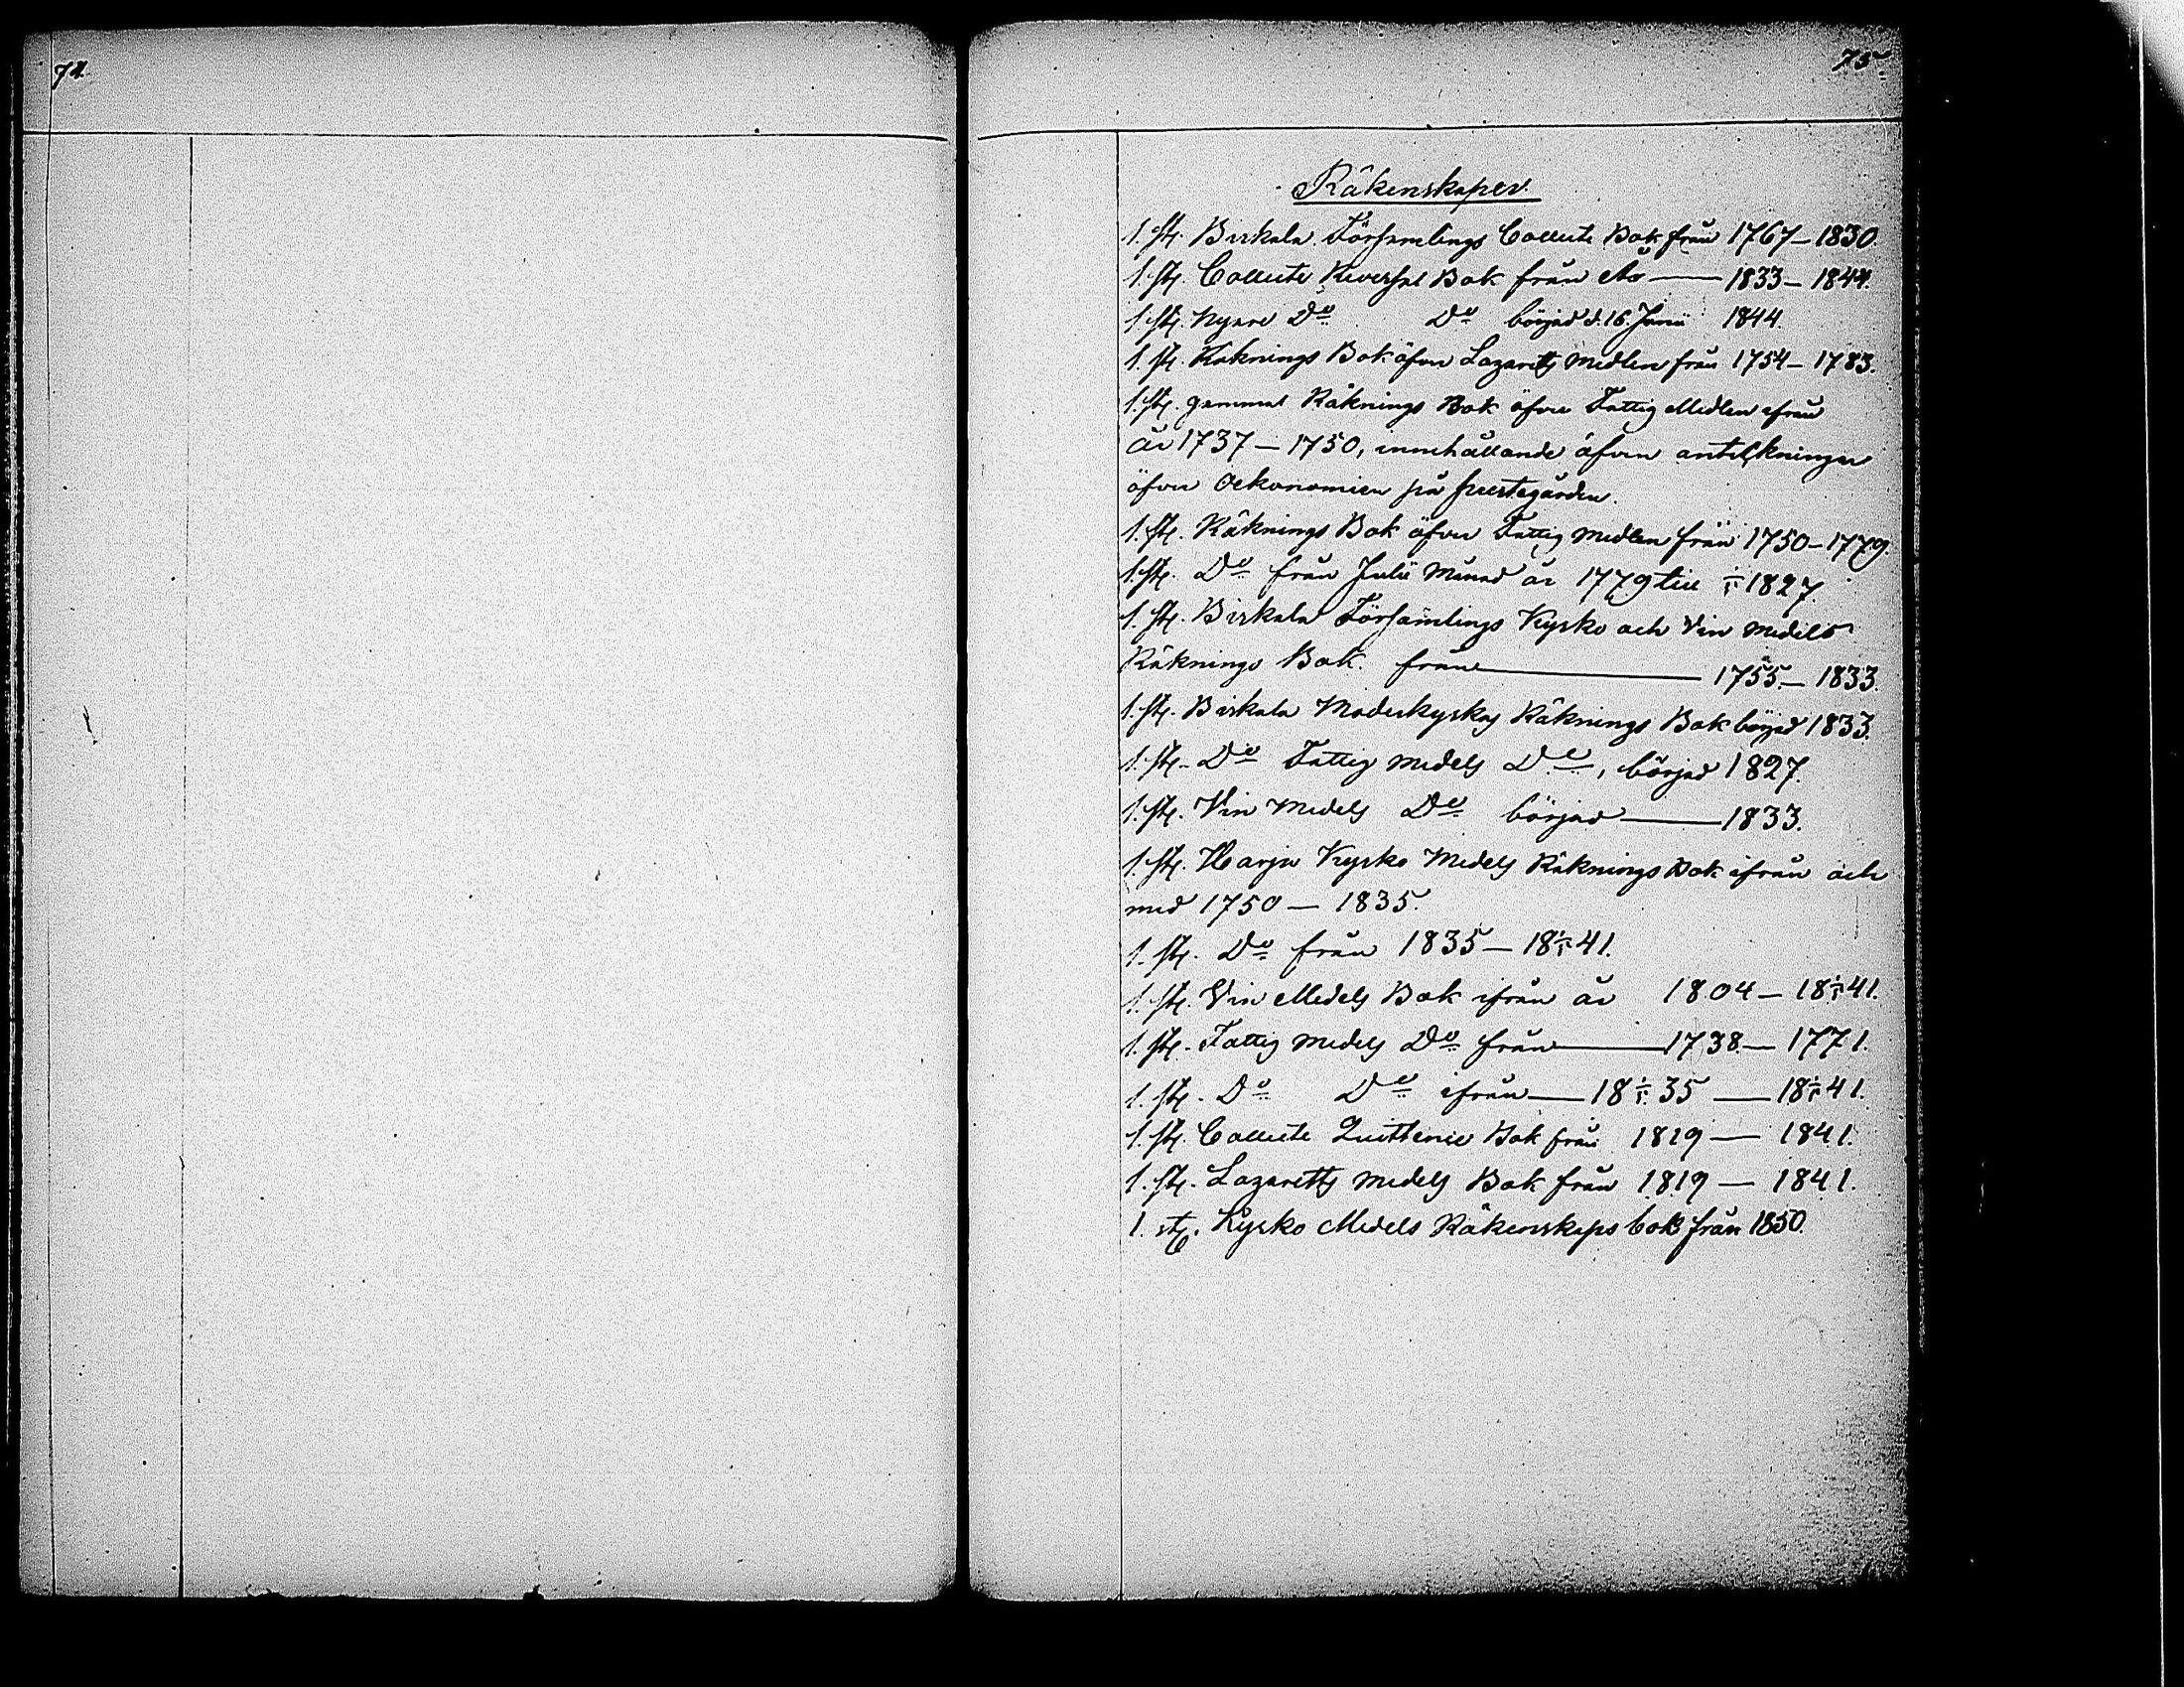 74.
75.
Räkenskaper.
1. st. Birkala Församlings Collecte Bok från 1767–1830.
1. st. Collecte Reversal Bok från År — 1833–1844.
1. st. Nyare Do Do börjad d. 16 Junii 1844.
1. st. Räknings Bok öfver Lazaretts medlen från 1754–1783.
1. st. gammal Räknings Bok öfver Fattig Medlen ifrån
år 1737–1750, innehållande äfven anteckningar
öfver Oekonomien på prestegården.
1. st. Räknings Bok öfver Fattig medlen från 1750–1779.
1. st. Do från Julii Månad år 1779 till 1/5 1827.
1. st. Birkala Församlings Kyrko och Vin medels
Räknings Bok från — 1755–1833.
1. st. Birkala Moderkyrkas Räknings Bok börjad 1833.
1. st. Do Fattig medels Do, börjad 1827.
1. st. Vin Medels Do börjad — 1833.
1. st. Harju Kyrko Medels Räknings Bok ifrån och
med 1750 — 1835.
1. st. Do från 1835 — 18 1/5 41.
1. st. Vin Medels Bok ifrån år 1804 — 18 1/5 41.
1. st. Fattig medels Do från — 1738 — 1771.
1. st. Do Do ifrån — 18 1/5 35 — 18 1/5 41.
1. st. Collecte Quittence Bok från 1819 — 1841.
1. st. Lazaretts medels Bok från 1819 — 1841.
1. st. Kyrko Medels Räkenskaps bok från 1850.